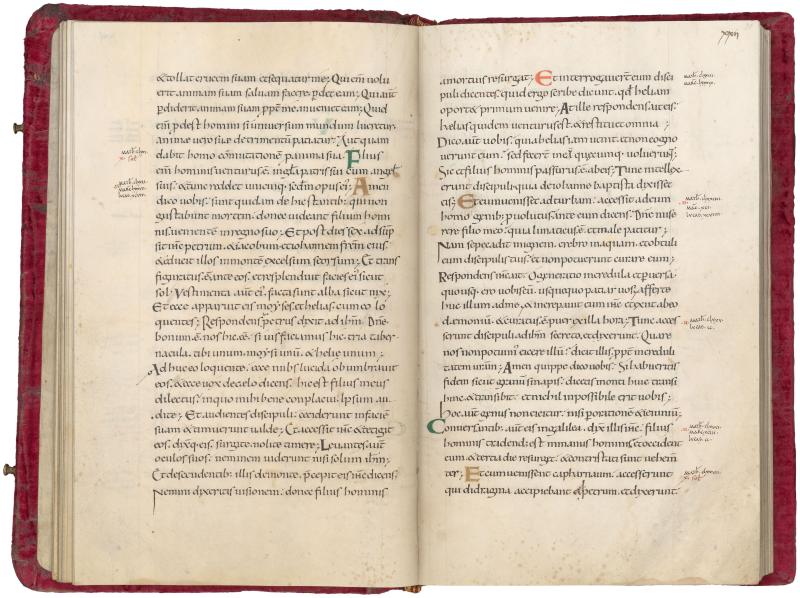 & tollat crucem suam et sequatur me; Qui enī volu
erit animam suam salvam facere. ꝑdet eam; Qui aūt
ꝑdiderit animam suam ꝓpt̄ me. inveniet eam; Quid
enī ꝓdest homini si universum mundum lucretur.
animae vero suae detrimentū patiatur; Aut quam
dabit homo cōmutationē pro anima sua; Filius
enī hominis venturus ē. in glā patris sui cum angel̄
suis. & tunc reddet unicuiq; sedm̄ opus ei'; Amen
dico vobis. sunt quidam de hic stantib; qui non
gustabunt mortem. donec videant filium homi
nis venientē in regno suo; Et post dies sex. adsūp
sit ih̄s petrum. & iacobum et iohannem frēm eius
& ducit illos in montē excelsum seorsum; Et trans
figuratus ē ante eos. et resplenduit facies ei' sicut
sol; Vestimenta aūt ei'. facta sunt alba sicut nix;
Et ecce apparuit eis moyses. et helias. cum eo lo
quentes; Respondens petrus dixit ad ih̄m. Dn̄e
bonum ē nos hic eē. si vis faciamus hic tria taber
nacula. tibi unum. moysi unū. & heliae unum;
Adhuc eo loquente. ecce nubs lucida obumbravit
eos. & ecce vox de caelo dicens. hic est filius meus
dilectus. in quo mihi bene complacui. Ipsum au
dite; Et audientes discipuli. ceciderunt in facie
suam & timuerunt valde; Et accessit ih̄s & tetigit
eos. dixq; eis. surgite. nolite timere; Levantes aūt
oculos suos. neminem viderunt nisi solum ih̄m;
Et descendentib; illis de monte. p̄cepit eis ih̄s dicens.
Nemini dixeritis visionem. donec filius hominis
xxiii
a mortuis resurgat; Et interrogaverūt eum disci
puli dicentes. quid ergo scribe dicunt. qd̄ heliam
oporte& primum venire; At ille respondens. ait eis.
helias quidem venturus est. & restituet omnia;
Dico aūt vobis. quia helias iam venit. et non cogno
verunt eum. sed fecer̄t in eo quecumq; voluer̄;
Sic et filius hominis passurus ē ab eis; Tunc intellex
erunt discipuli. quia de iohanne baptista dixisset
eis; Et cum venisset ad turbam. accessit ad eum
homo genib; ꝓvolutus. ante eum dicens. Dn̄e mise
rere filio meo. quia lunaticus ē. et male patitur;
Nam sepe cadit in ignem. crebro in aquam. et obtuli
eum discipulis tuis. et non potuerunt curare eum;
Respondens ih̄s ait. O generatio incredula et ꝑversa.
quousq; ero vobiscū. usquequo patiar vos; afferte
huc illum ad me. & increpavit eum ih̄s. et exiit ab eo
daemoniū. & curatus ē puer ex illa hora; Tunc acces
serunt discipuli ad ih̄m secreto. et dixerunt. Quare
nos non potuim' eicere illū; dicit illis. ꝓpt̄ increduli
tatem vr̄am; Amen quippe dico vobis. Si habueritis
fidem sicut granū sinapis. dicetis monti huic transi
hinc. & transibit. et nichil impossibile erit vobis;
hoc aūt genus non eicitur. nisi ꝑ orationē & ieiuniū;
Conversantib; aūt eis in galilea. dix̄ illis ih̄s. filius
hominis tradendus est in manus hominū. et occident
eum & tercia die resurget. & contristati sunt vehem̄
ter; Et cum venissent capharnaum. accesserunt
qui didragma accipiebant ad petrum. et dixerunt.